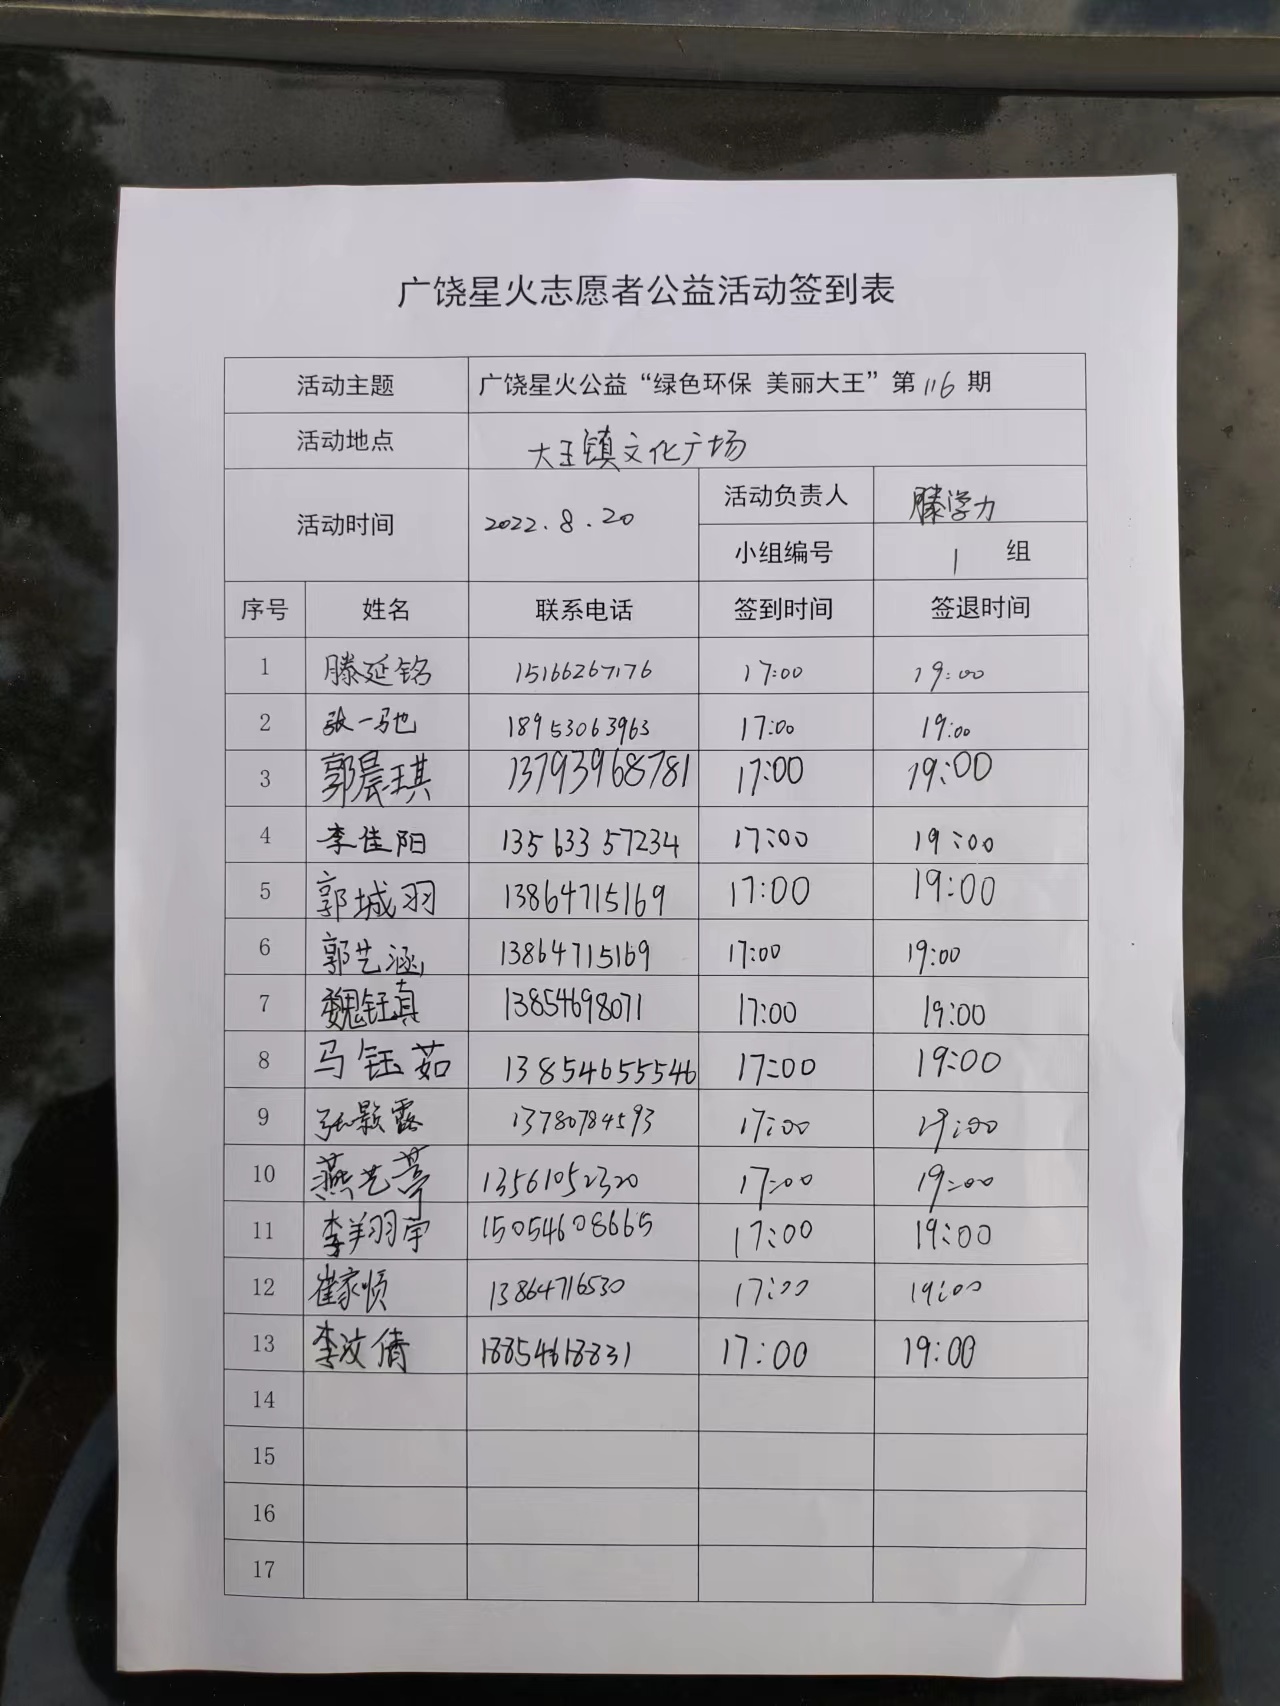 广饶星火志愿者公益活动签到表
活动主题 广饶星火公益“绿色环保 美丽大王”第116期
活动地点 大王镇文化广场
活动时间 2022.8.20 活动负责人 滕学力
小组编号 1 组
序号 姓名 联系电话 签到时间 签退时间
1 滕延铭 15166267176 17:00 19:00
2 张一驰 18953063963 17:00 19:00
3 郭晨琪 13793968781 17:00 19:00
4 李佳阳 13563357234 17:00 19:00
5 郭城羽 13864715169 17:00 19:00
6 郭艺涵 13864715169 17:00 19:00
7 魏钰真 13854698071 17:00 19:00
8 马钰茹 13854655546 17:00 19:00
9 张颢露 13780784593 17:00 19:00
10 燕艺葶 13561052320 17:00 19:00
11 李翔宇 15054608665 17:00 19:00
12 崔家顺 13864716530 17:00 19:00
13 李汶倩 18854618831 17:00 19:00
14
15
16
17